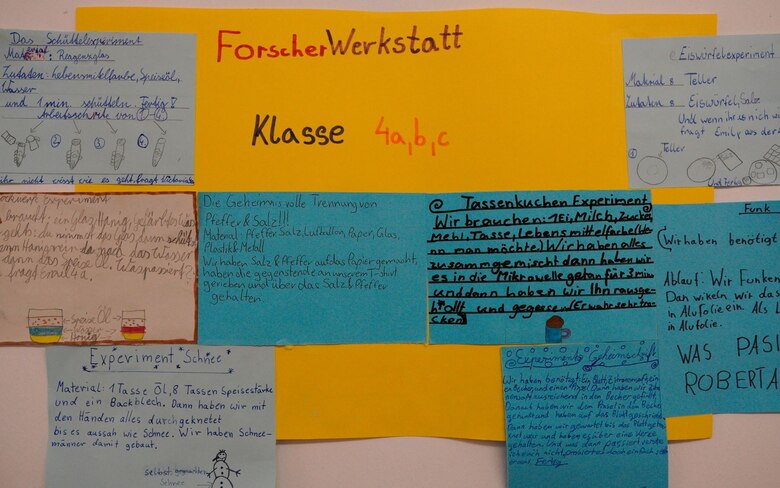 ForscherWerkstatt
Klasse 4a,b,c
Das Schüttelexperiment
Material: Reagenzglas
Zutaten: Lebensmittelfarbe, Speiseöl,
Wasser
und 1 min. schütteln. Fertig
Arbeitsschritte von 1-4
ihr nicht wisst wie es geht fragt
Eiswürfelexperiment
Material: Teller
Zutaten: Eiswürfel, Salz
Und wenn ihr es nich
fragt Emily aus der
Teller
Experiment
braucht: ein Glaz, Honig, gefärbtes
geht: du nimmst das Glas, dann
dann Honig rein das Wasser
dann das Speise Öl. Was passiert?
fragt 4a.
Speise Öl
Wasser
Honig
Die Geheimnis volle Trennung von
Pfeffer & Salz!!!
Material: Pfeffer, Salz, Luftballon, Papier, Glas,
Plastik & Metall
Wir haben Salz & Pfeffer auf das Papier gemacht,
haben die gegenstände an unserem T-shirt
gerieben und über das Salz & Pfeffer
gehalten.
Tassenkuchen Experiment
Wir brauchen: 1 Ei, Milch, Zucker,
Mehl, Tasse, Lebensmittelfarbe (we
nn man möchte) Wir haben alles
zusammgemischt dann haben wir
es in die Mikrowelle getan für 3 min
und dann haben wir Ihn rausge-
hollt und gegessen! Er wahr sehr tro-
cken
Funk
Wir haben benötigt
Ablauf: Wir Funken
Dan wikeln wir das
in Alufolie ein. Als
in Alufolie.
WAS PASI
ROBERTA
Experiment Schnee
Material: 1 Tasse Öl, 8 Tassen Speisestärke
und ein Backblech. Dann haben wir mit
den Händen alles durchgeknetet
bis es aussah wie Schnee. Wir haben Schnee-
männer damit gebaut.
selbst gemachter
Schnee
Experiment Geheimschrift
Wir haben benötigt: ein Blatt, Zitronensaft, ein
en Becher und einen Pinsel. Dann haben wir
in den Becher gefüllt.
Danach haben wir den Pinsel in den Becher
getunkt und haben auf das Blatt geschrieben.
Dann haben wir gewartet bis das Blatt
war und haben es über eine Kerze
gehalten. Und was dann passiert
Fertig